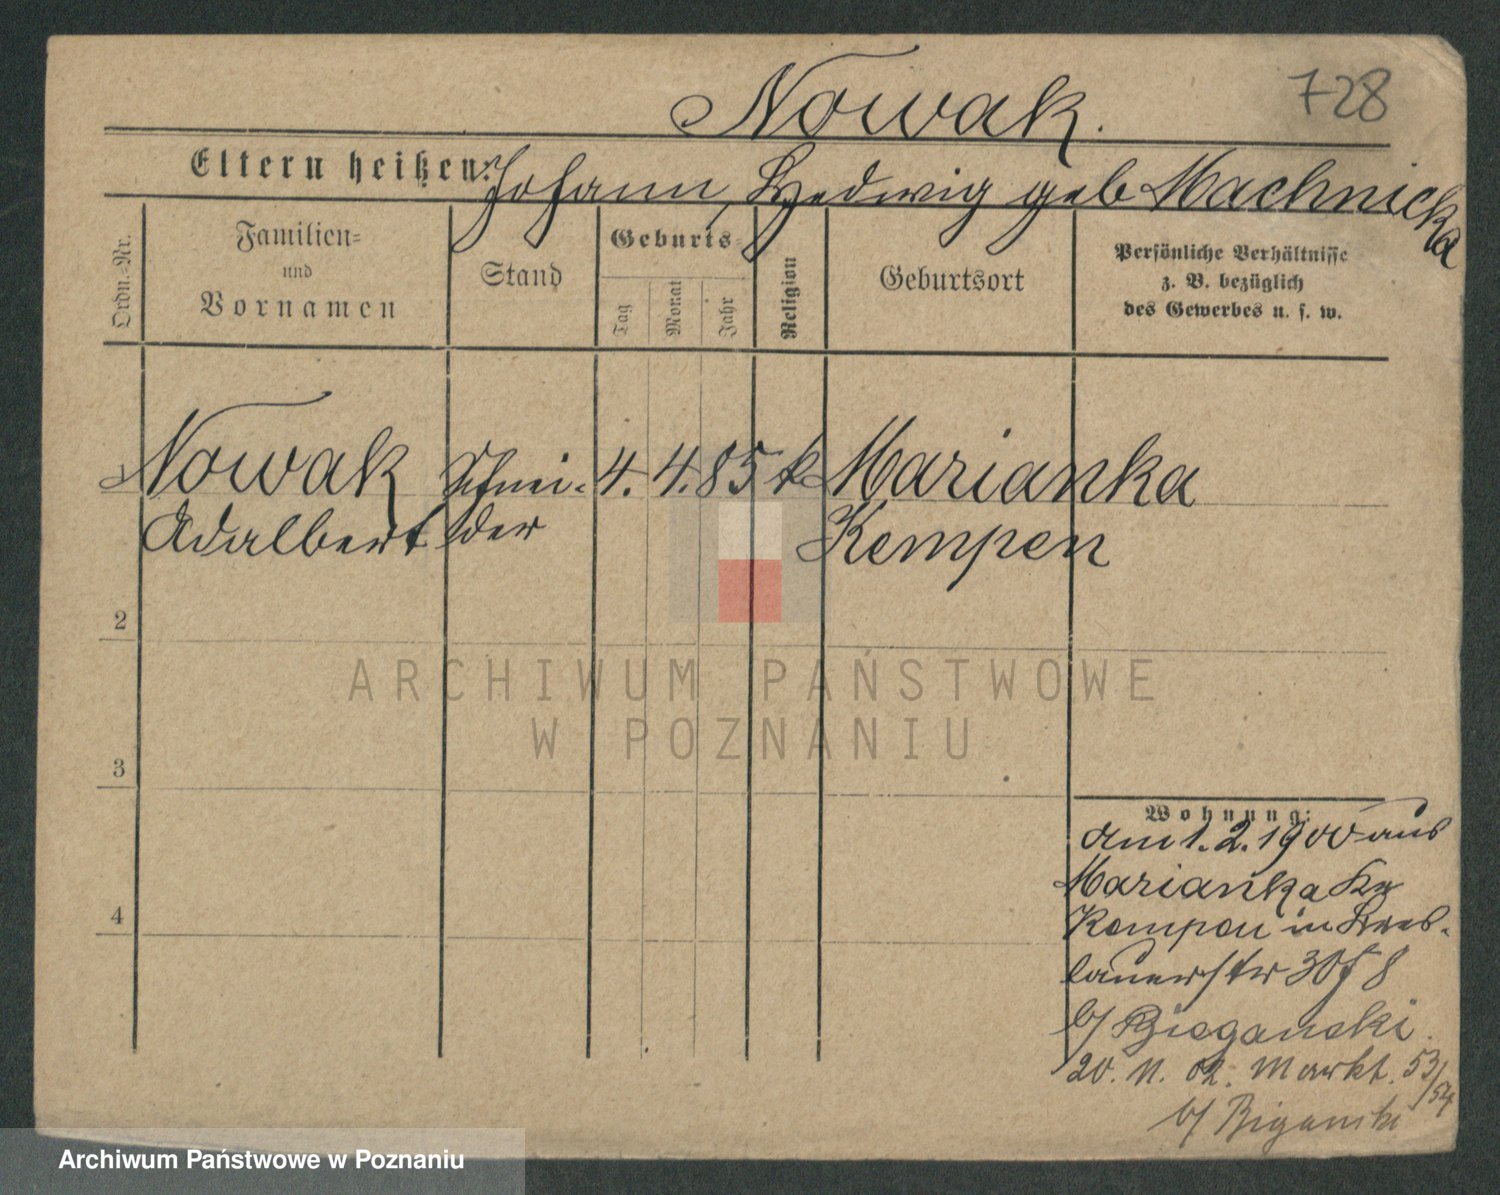 Nowak.
728
Eltern heißen: Johann, Hedwig geb Machnicka
Ordn.-Nr.
Familien=
und
Vornamen
Stand
Geburts=
Tag
Monat
Jahr
Religion
Geburtsort
Persönliche Verhältnisse
z. B. bezüglich
des Gewerbes u. s. w.
Nowak Schnei- 4. 4. 85 k Marianka
Adalbert der Kempen
2
3
4
Wohnung:
am 1. 2. 1900 aus
Marianka Kr
Kempen in Bres-
lauerstr 30
b/ Bieganski
20. 11. 02. Markt. 53/54
b/ Biganski
ARCHIWUM PAŃSTWOWE
W POZNANIU
Archiwum Państwowe w Poznaniu